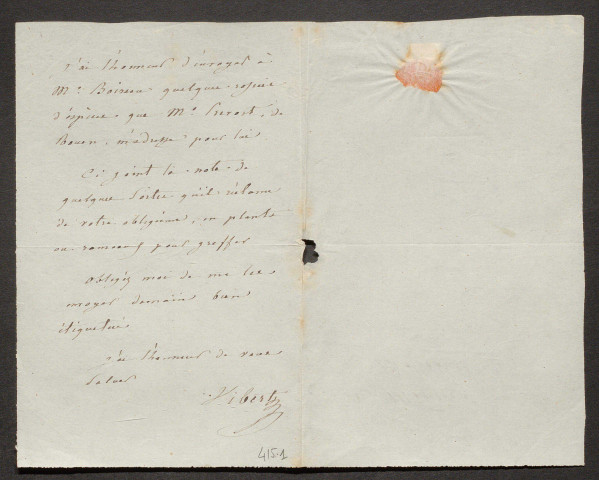 J'ai l'honneur d'envoyer à
Mr. Boireau quelque copie
d'epine que Mr. Prevost, de
Rouen, m'adresse pour lui
Ci joint la note de
quelque sortes qu'il réclame
de votre obligence, en plante
ou rameaux pour greffer
obligez moi de me les
envoyer demain bien
étiquetée
j'ai l'honneur de vous
saluer
Vibert
415-1